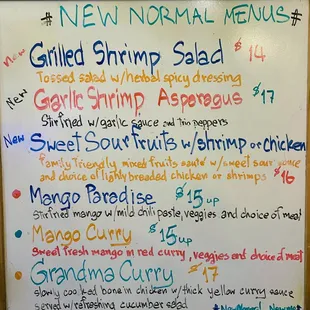 # NEW NORMAL MENUS #
New Grilled Shrimp Salad $14
Tossed salad w/herbal spicy dressing
New Garlic Shrimp Asparagus $17
Stirfried w/garlic sauce and trio peppers
New Sweet Sour Fruits w/shrimp or chicken
family friendly mixed fruits saute w/sweet sour sauce
and choice of lightly breaded chicken or shrimps $16
Mango Paradise $15 up
Stirfried mango w/mild chili paste, veggies and choice of meat
Mango Curry $15 up
sweet fresh mango in red curry, veggies and choice of meat
Grandma Curry $17
slowly cooked bone in chicken w/thick yellow curry sauce
served w/refreshing cucumber salad